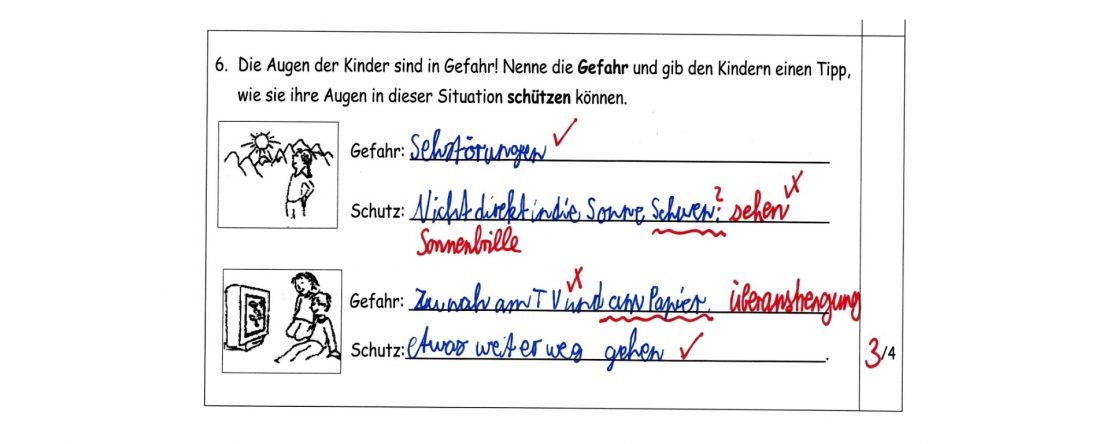 6. Die Augen der Kinder sind in Gefahr! Nenne die Gefahr und gib den Kindern einen Tipp,
wie sie ihre Augen in dieser Situation schützen können.
Gefahr: Sehstörungen ✓
Schutz: Nicht direkt in die Sonne Schwen. ? sehen
Sonnenbrille
Gefahr: Zu nah am TV und am Papier. überanstrengung
Schutz: etwas weiter weg gehen ✓ .
3/4